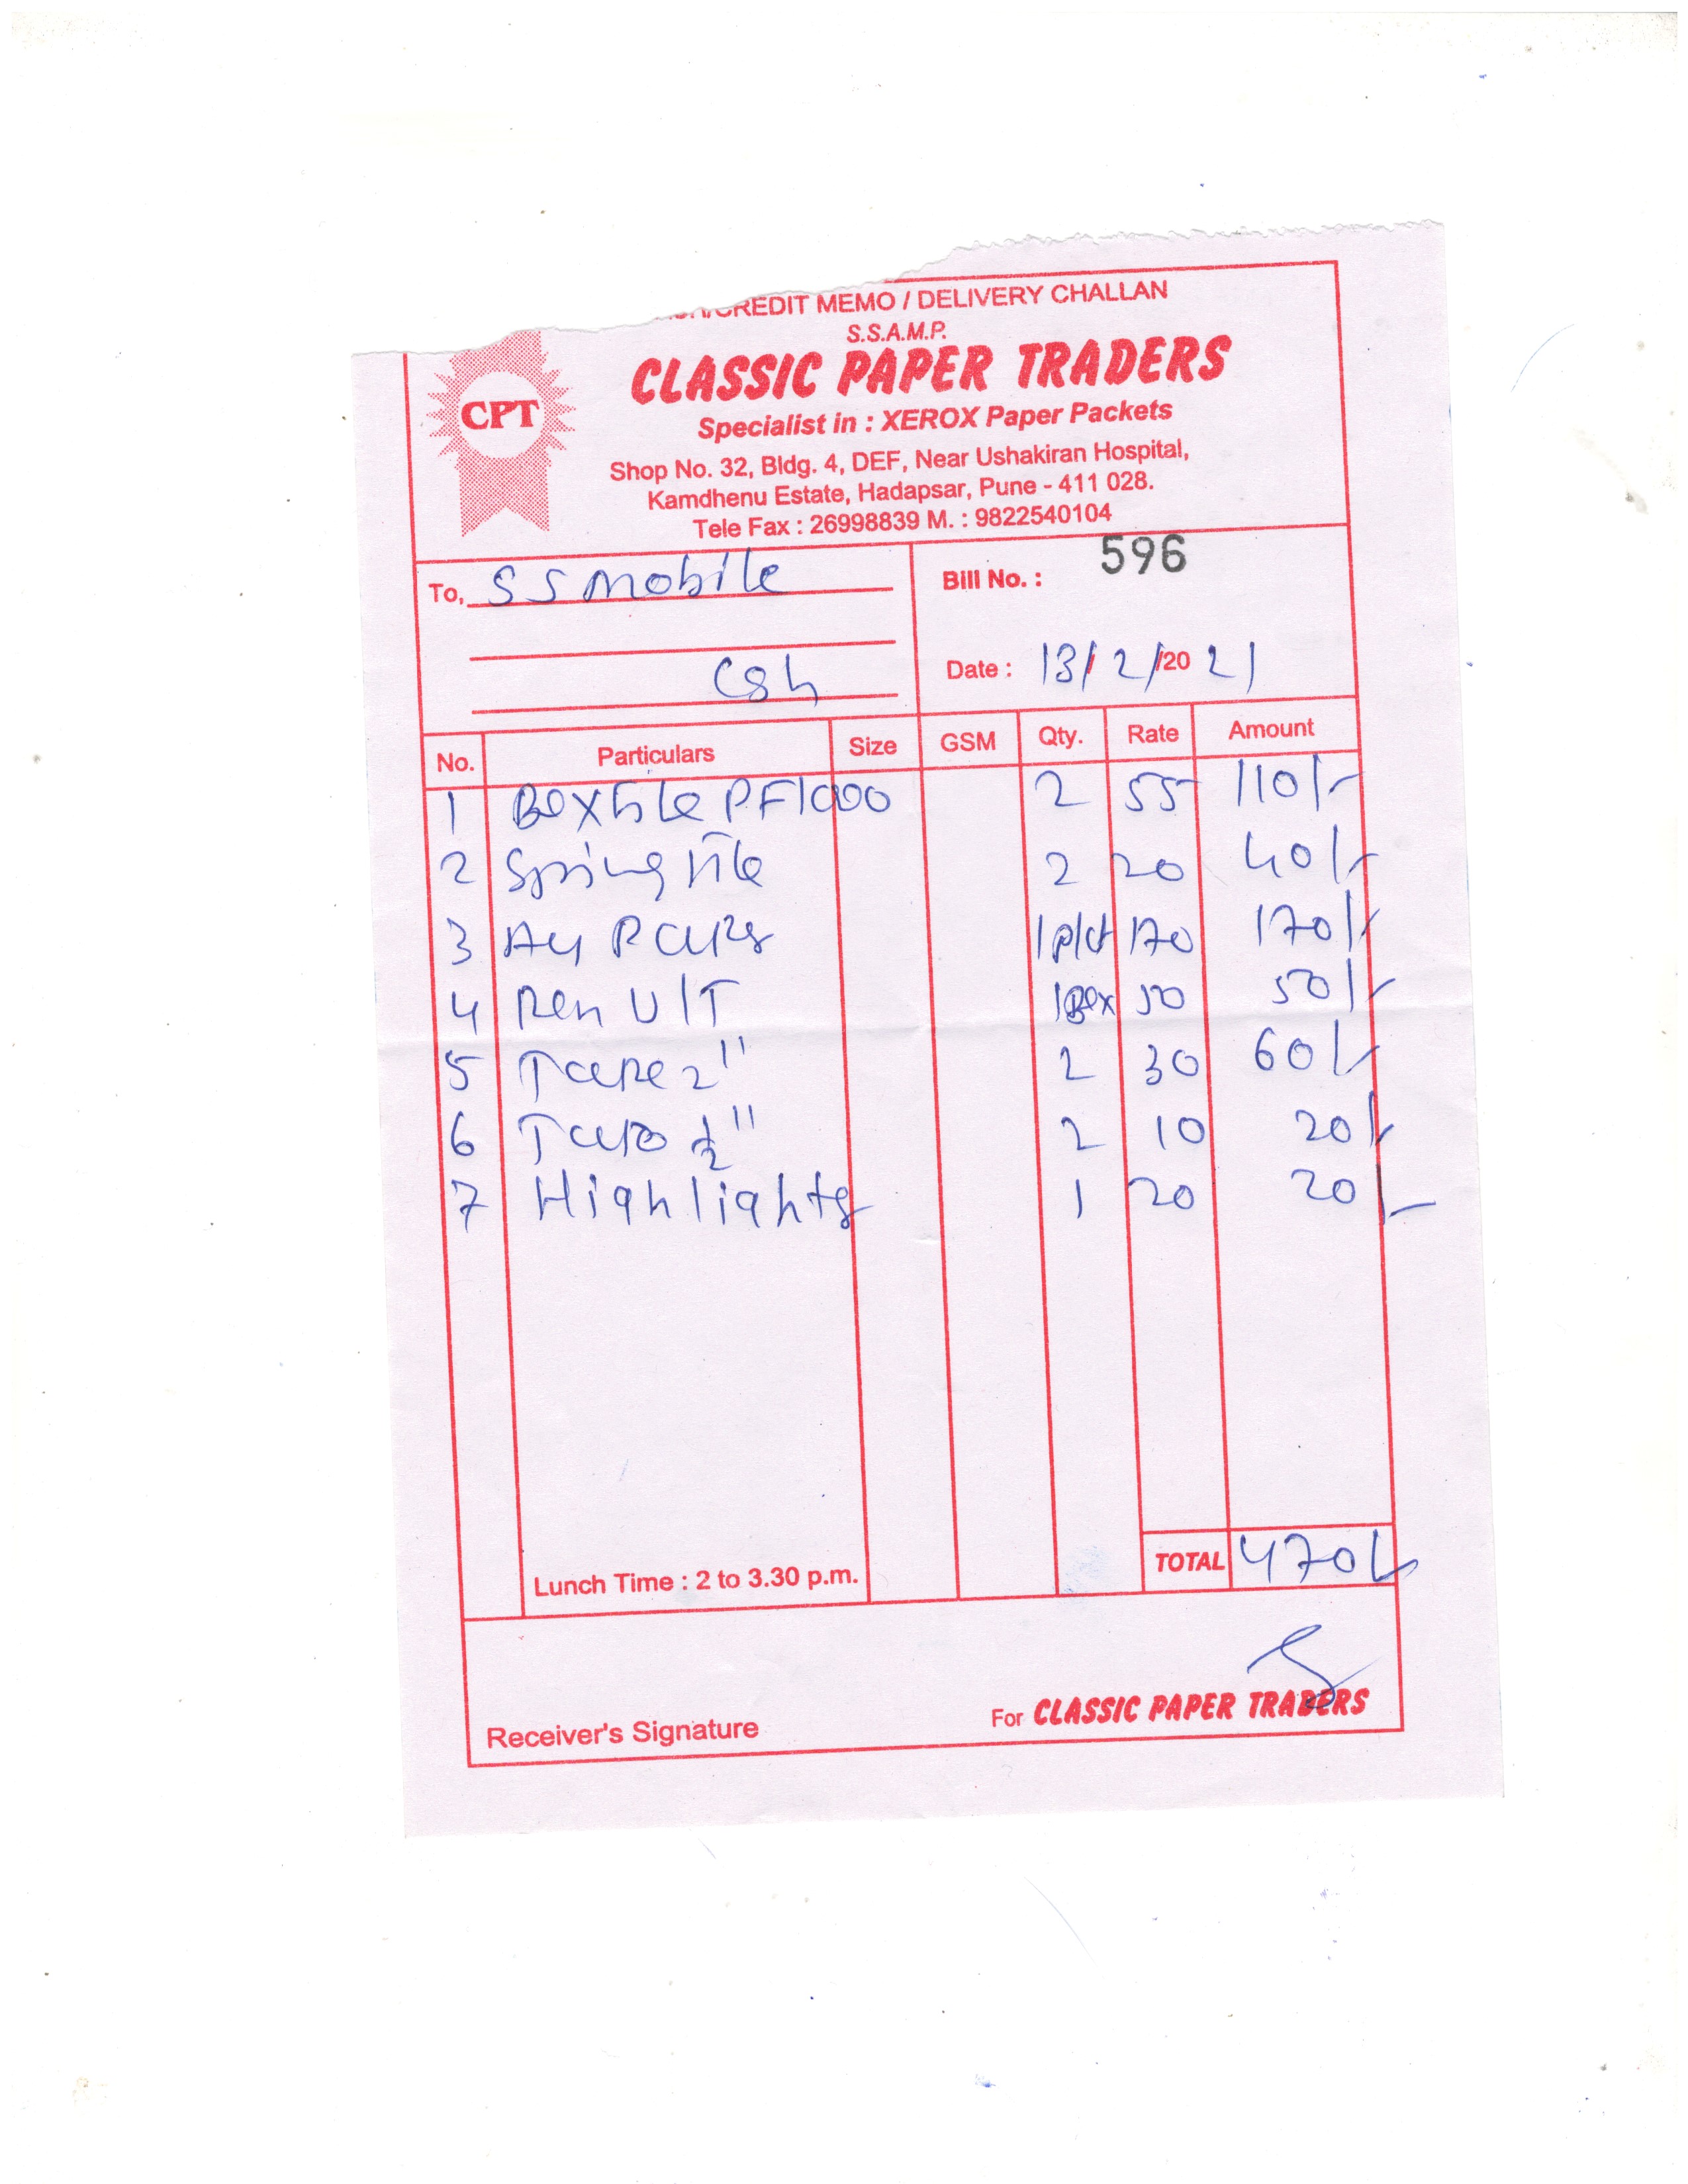 CREDIT MEMO / DELIVERY CHALLAN
S.S.A.M.P.
CLASSIC PAPER TRADERS
CPT
Specialist in : XEROX Paper Packets
Shop No. 32, Bldg. 4, DEF, Near Ushakiran Hospital,
Kamdhenu Estate, Hadapsar, Pune - 411 028.
Tele Fax : 26998839 M. : 9822540104
To, SS Mobile
Bill No. : 596
Csh
Date : 13/2/2021
No. Particulars Size GSM Qty. Rate Amount
1 Box file PF1000 2 55 110/-
2 Spring File 2 20 40/-
3 A4 Paper 1 pkt 170 170/-
4 Pen U/T 1 Box 50 50/-
5 Tape 2" 2 30 60/-
6 Tape ½" 2 10 20/-
7 Highlighter 1 20 20/-
Lunch Time : 2 to 3.30 p.m.
TOTAL 470/-
Receiver's Signature
For CLASSIC PAPER TRADERS